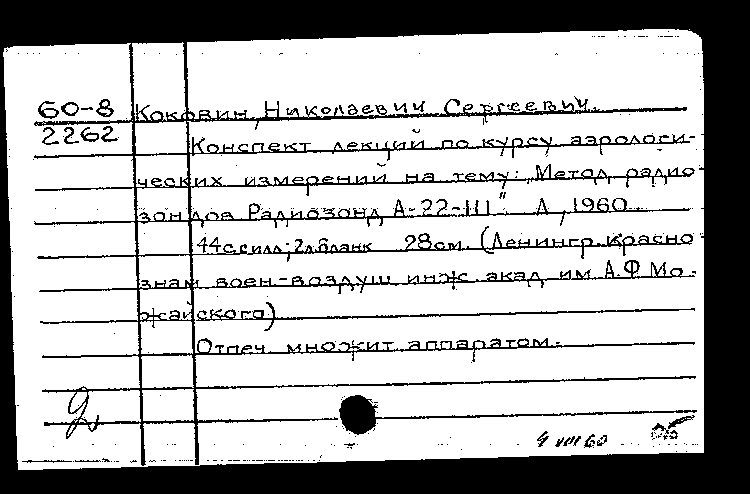 60-8 Коковин, Николаевич Сергеевич.
2262
Конспект лекций по курсу аэрологи-
ческих измерений на тему: „Метод радио-
зондов Радиозонд А-22-III" Л, 1960
44с.силл; 2л.бланк 28см. (Ленингр. красно-
знам воен.-воздуш инж. акад им А.Ф Мо-
жайского)
Отпеч множит аппаратом.
2
4 VIII 60